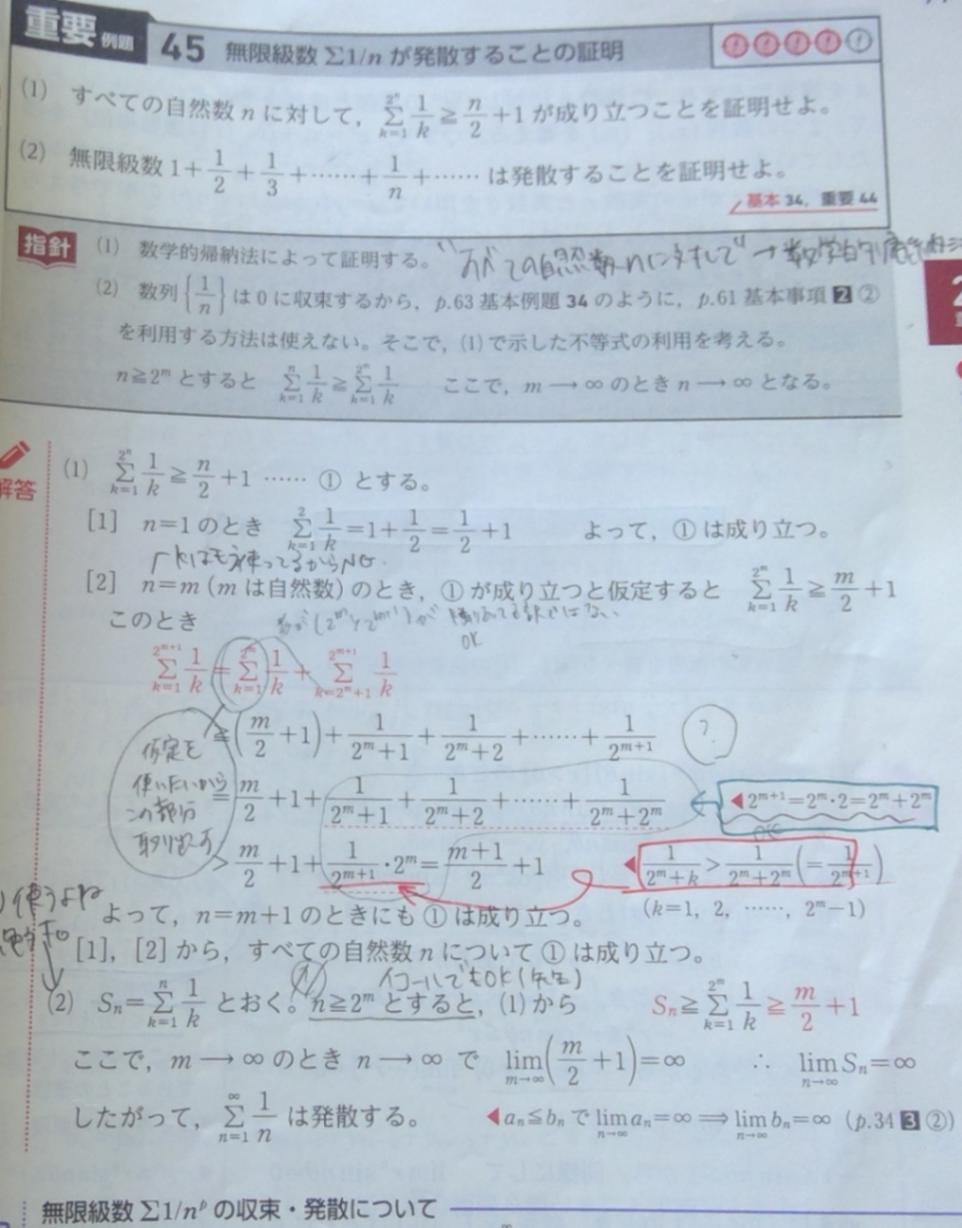 重要 例題 45 無限級数 Σ1/n が発散することの証明
(1) すべての自然数 n に対して, \sum_{k=1}^{2^n} \frac{1}{k} ≧ \frac{n}{2} +1 が成り立つことを証明せよ。
(2) 無限級数 1+\frac{1}{2}+\frac{1}{3}+……+\frac{1}{n}+…… は発散することを証明せよ。
基本 34, 重要 44
指針 (1) 数学的帰納法によって証明する。 "すべての自然数nに対して" → 数学的帰納法
(2) 数列 {\frac{1}{n}} は 0 に収束するから, p.63 基本例題 34 のように, p.61 基本事項 2 ②
を利用する方法は使えない。そこで, (1) で示した不等式の利用を考える。
n≧2^m とすると \sum_{k=1}^{n} \frac{1}{k} ≧ \sum_{k=1}^{2^m} \frac{1}{k} ここで, m → ∞ のとき n → ∞ となる。
解答
(1) \sum_{k=1}^{2^n} \frac{1}{k} ≧ \frac{n}{2} +1 …… ① とする。
[1] n=1 のとき \sum_{k=1}^{2} \frac{1}{k} =1+\frac{1}{2}=\frac{1}{2}+1 よって, ① は成り立つ。
kはもう使ってるからNG.
[2] n=m (m は自然数) のとき, ① が成り立つと仮定すると \sum_{k=1}^{2^m} \frac{1}{k} ≧ \frac{m}{2} +1
このとき
OK
\sum_{k=1}^{2^{m+1}} \frac{1}{k} = \sum_{k=1}^{2^m} \frac{1}{k} + \sum_{k=2^m+1}^{2^{m+1}} \frac{1}{k}
≧(\frac{m}{2}+1)+\frac{1}{2^m+1}+\frac{1}{2^m+2}+……+\frac{1}{2^{m+1}} ?
仮定を
使いたいから
この部分
取り出す
=\frac{m}{2}+1+\frac{1}{2^m+1}+\frac{1}{2^m+2}+……+\frac{1}{2^m+2^m} ◀2^{m+1}=2^m・2=2^m+2^m
>\frac{m}{2}+1+\frac{1}{2^{m+1}}・2^m=\frac{m+1}{2}+1 ◀\frac{1}{2^m+k}>\frac{1}{2^m+2^m}(=\frac{1}{2^{m+1}})
(k=1, 2, ……, 2^m−1)
使うよね
よって, n=m+1 のときにも ① は成り立つ。
[1], [2] から, すべての自然数 n について ① は成り立つ。
イコールでもOK(先生)
(2) S_n=\sum_{k=1}^{n} \frac{1}{k} とおく。n≧2^m とすると, (1) から S_n≧\sum_{k=1}^{2^m} \frac{1}{k} ≧ \frac{m}{2} +1
ここで, m → ∞ のとき n → ∞ で \lim_{m→∞}(\frac{m}{2}+1)=∞ ∴ \lim_{n→∞} S_n=∞
したがって, \sum_{n=1}^{∞} \frac{1}{n} は発散する。 ◀a_n≦b_n で \lim_{n→∞} a_n=∞ ⟹ \lim_{n→∞} b_n=∞ (p.34 3 ②)
無限級数 Σ1/n^p の収束・発散について